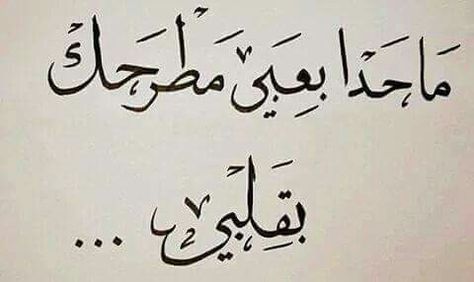 مَا حَدَا بِعَبِي مَطْرَحَك
بِقَلِبِي ...